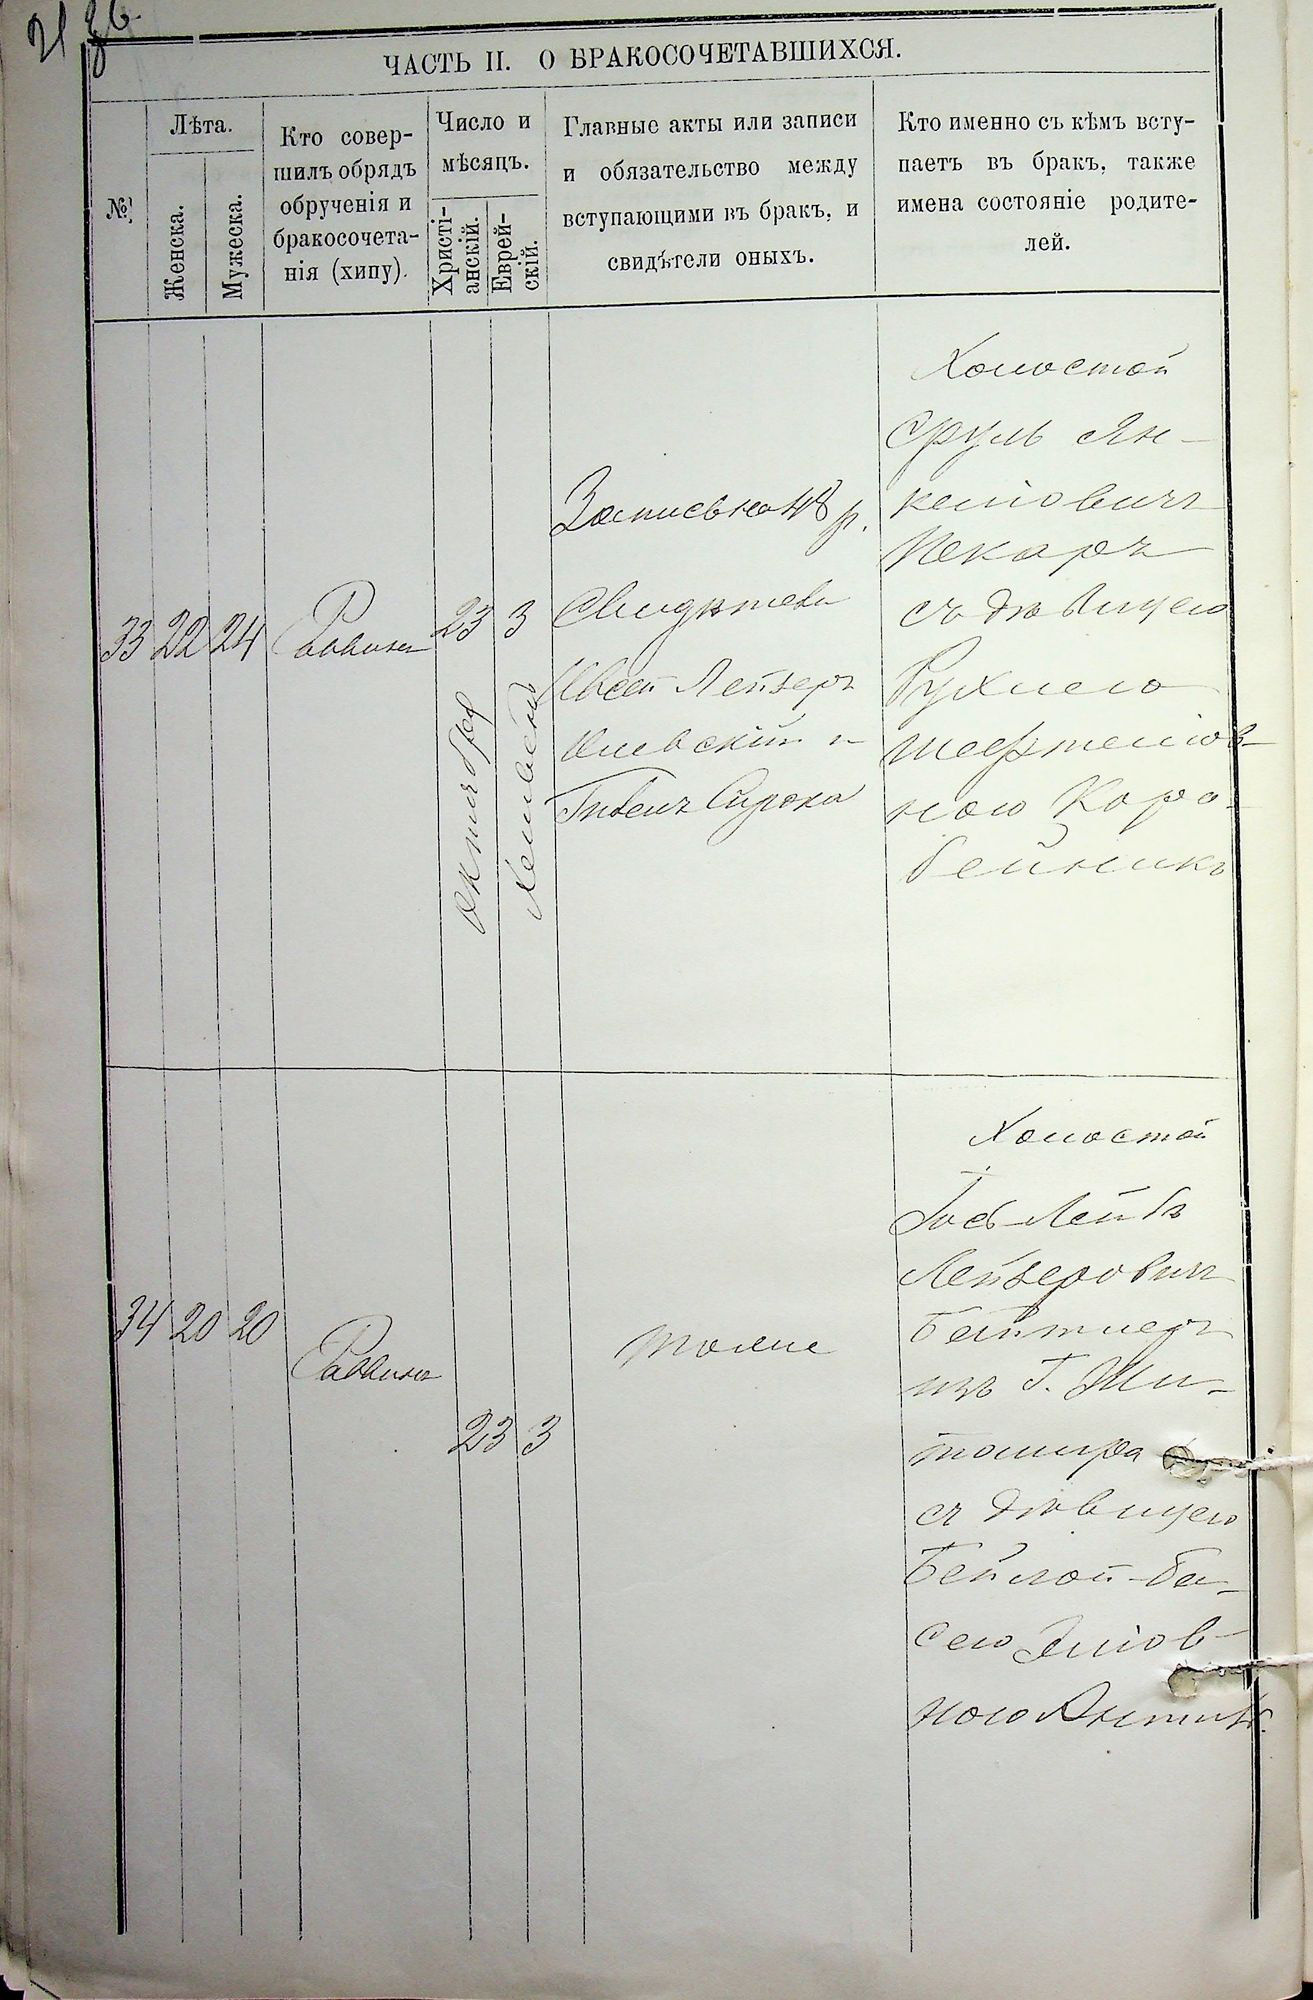 ЧАСТЬ II. О БРАКОСОЧЕТАВШИХСЯ.
№
Лѣта.
Женска.
Мужеска.
Кто совер-
шилъ обрядъ
обрученія и
бракосочета-
нія (хипу).
Число и
мѣсяцъ.
Христі-
анскій.
Еврей-
скій.
Главные акты или записи
и обязательство между
вступающими въ бракъ, и
свидѣтели оныхъ.
Кто именно съ кѣмъ всту-
паетъ въ бракъ, также
имена состояніе родите-
лей.
33 22 24 Раввинъ 23 3
Октября
Хешвенъ
Запись на 48 р.
Свидѣтели
Лейзеръ
и
Сирота
Холостой
Сруль Ян-
келіовичъ
Пекаръ
съ дѣвицею
Рухлею
ною Коро-
бейникъ
34 20 20 Раввинъ 23 3
тоже
Холостой
Іось-Лейбъ
Лейзеровичъ
изъ Г. Жи-
томира
съ дѣвицею
Бейлой-Ба-
сею Эліов-
ною